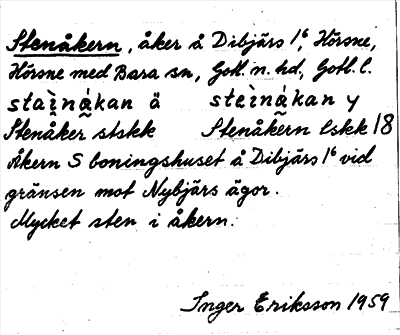 Stenåkern, åker å Dibjärs 1⁶, Hörsne,
Hörsne med Bara sn, Gotl. n. hd, Gotl. l.
staìnákan ä steìnákan y
Stenåker stskk Stenåkern lskk 18
Åkern S boningshuset å Dibjärs 1⁶ vid
gränsen mot Nybjärs ägor.
Mycket sten i åkern.
Inger Eriksson 1959